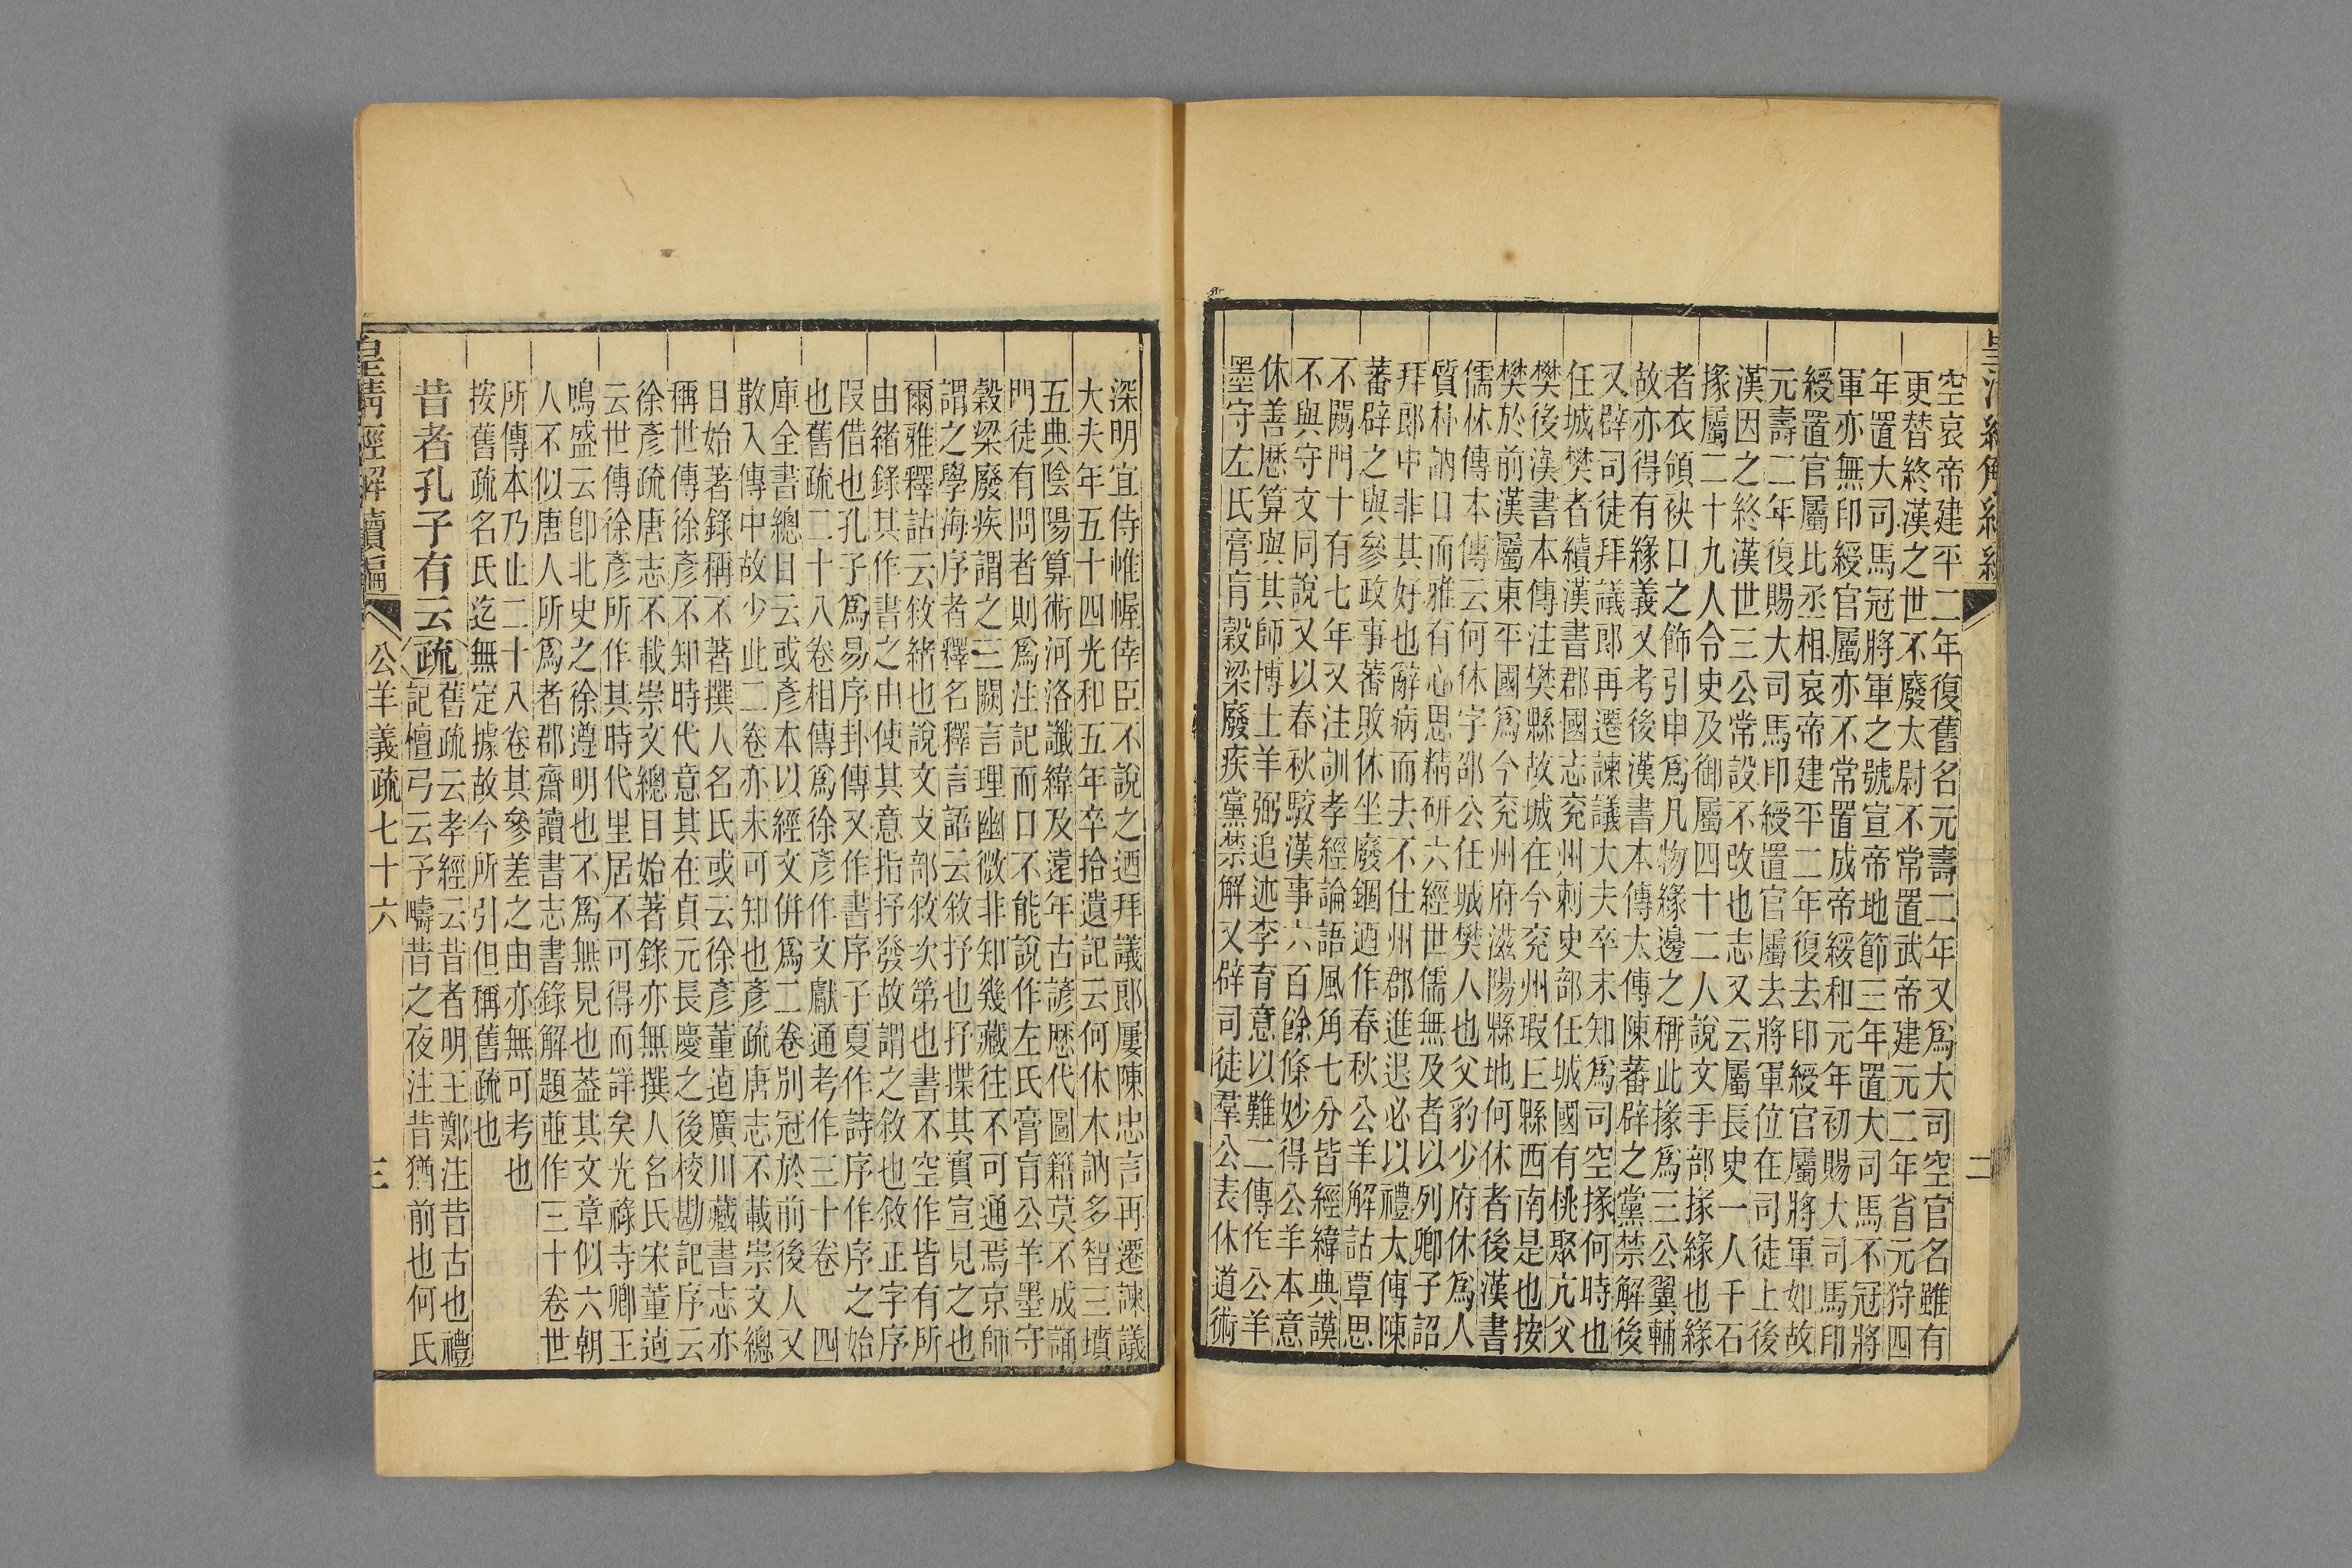 空哀帝建平二年復舊名元壽二年又爲大司空官名雖有
更替終漢之世不廢太尉不常置武帝建元二年省元狩四
年置大司馬冠將軍之號宣帝地節三年置大司馬不冠將
軍亦無印綬官屬亦不常置成帝綏和元年初賜大司馬印
綬置官屬比丞相哀帝建平二年復去印綬官屬將軍如故
元壽二年復賜大司馬印綬置官屬去將軍位在司徒上後
漢因之終漢世三公常設不改也志又云屬長史一人千石
掾屬二十九人令史及御屬四十二人說文手部掾緣也緣
者衣領袂口之飾引申爲凡物緣邊之稱此掾爲三公翼輔
故亦得有緣義又考後漢書本傳太傅陳蕃辟之黨禁解後
又辟司徒拜議郎再遷諫議大夫卒未知爲司空掾何時也
任城樊者續漢書郡國志兗州刺史部任城國有桃聚亢父
樊後漢書本傳注樊縣故城在今兗州瑕丘縣西南是也按
樊於前漢屬東平國爲今兗州府滋陽縣地何休者後漢書
儒林傳本傳云何休字邵公任城樊人也父豹少府休爲人
質朴訥口而雅有心思精研六經世儒無及者以列卿子詔
拜郎中非其好也辭病而去不仕州郡進退必以禮太傅陳
蕃辟之與參政事蕃敗休坐廢錮迺作春秋公羊解詁覃思
不闚門十有七年又注訓孝經論語風角七分皆經緯典謨
不與守文同說又以春秋駮漢事六百餘條妙得公羊本意
休善厯算與其師博士羊弼追述李育意以難二傳作公羊
墨守左氏膏肓穀梁廢疾黨禁解又辟司徒羣公表休道術
皇清經解續編
二
深明宜侍帷幄倖臣不說之迺拜議郎屢陳忠言再遷諫議
大夫年五十四光和五年卒拾遺記云何休木訥多智三墳
五典陰陽算術河洛讖緯及遠年古諺厯代圖籍莫不成誦
門徒有問者則爲注記而口不能說作左氏膏肓公羊墨守
穀梁廢疾謂之三闕言理幽微非知幾藏往不可通焉京師
謂之學海序者釋名釋言語云敘抒也抒揲其實宣見之也
爾雅釋詁云敘緒也說文攴部敘次第也書不空作皆有所
由緒錄其作書之由使其意指抒發故謂之敘也敘正字序
叚借也孔子爲易序卦傳又作書序子夏作詩序作序之始
也舊疏二十八卷相傳爲徐彥作文獻通考作三十卷 四
庫全書總目云或彥本以經文併爲二卷別冠於前後人又
散入傳中故少此二卷亦未可知也彥疏唐志不載崇文總
目始著錄稱不著撰人名氏或云徐彥董逌廣川藏書志亦
稱世傳徐彥不知時代意其在貞元長慶之後校勘記序云
徐彥疏唐志不載崇文總目始著錄亦無撰人名氏宋董逌
云世傳徐彥所作其時代里居不可得而詳矣光祿寺卿王
鳴盛云卽北史之徐遵明也不爲無見也葢其文章似六朝
人不似唐人所爲者郡齋讀書志書錄解題並作三十卷世
所傳本乃止二十八卷其參差之由亦無可考也
按舊疏名氏迄無定據故今所引但稱舊疏也
昔者孔子有云疏舊疏云孝經云昔者明王鄭注昔古也禮
記檀弓云予疇昔之夜注昔猶前也何氏
皇清經解續編
公羊義疏七十六
三